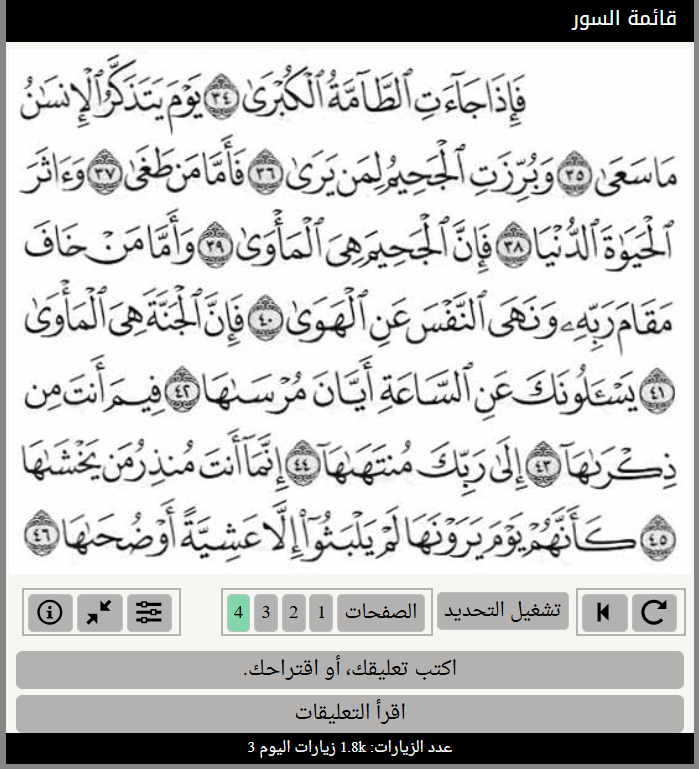 قائمة السور
فَإِذَا جَآءَتِ ٱلطَّآمَّةُ ٱلْكُبْرَىٰ ٣٤ يَوْمَ يَتَذَكَّرُ ٱلْإِنسَٰنُ
مَا سَعَىٰ ٣٥ وَبُرِّزَتِ ٱلْجَحِيمُ لِمَن يَرَىٰ ٣٦ فَأَمَّا مَن طَغَىٰ ٣٧ وَءَاثَرَ
ٱلْحَيَوٰةَ ٱلدُّنْيَا ٣٨ فَإِنَّ ٱلْجَحِيمَ هِىَ ٱلْمَأْوَىٰ ٣٩ وَأَمَّا مَنْ خَافَ
مَقَامَ رَبِّهِۦ وَنَهَى ٱلنَّفْسَ عَنِ ٱلْهَوَىٰ ٤٠ فَإِنَّ ٱلْجَنَّةَ هِىَ ٱلْمَأْوَىٰ
٤١ يَسْـَٔلُونَكَ عَنِ ٱلسَّاعَةِ أَيَّانَ مُرْسَىٰهَا ٤٢ فِيمَ أَنتَ مِن
ذِكْرَىٰهَآ ٤٣ إِلَىٰ رَبِّكَ مُنتَهَىٰهَآ ٤٤ إِنَّمَآ أَنتَ مُنذِرُ مَن يَخْشَىٰهَا
٤٥ كَأَنَّهُمْ يَوْمَ يَرَوْنَهَا لَمْ يَلْبَثُوٓا۟ إِلَّا عَشِيَّةً أَوْ ضُحَىٰهَا ٤٦
تشغيل التحديد الصفحات 1 2 3 4
اكتب تعليقك، أو اقتراحك.
اقرأ التعليقات
عدد الزيارات: 1.8k زيارات اليوم 3